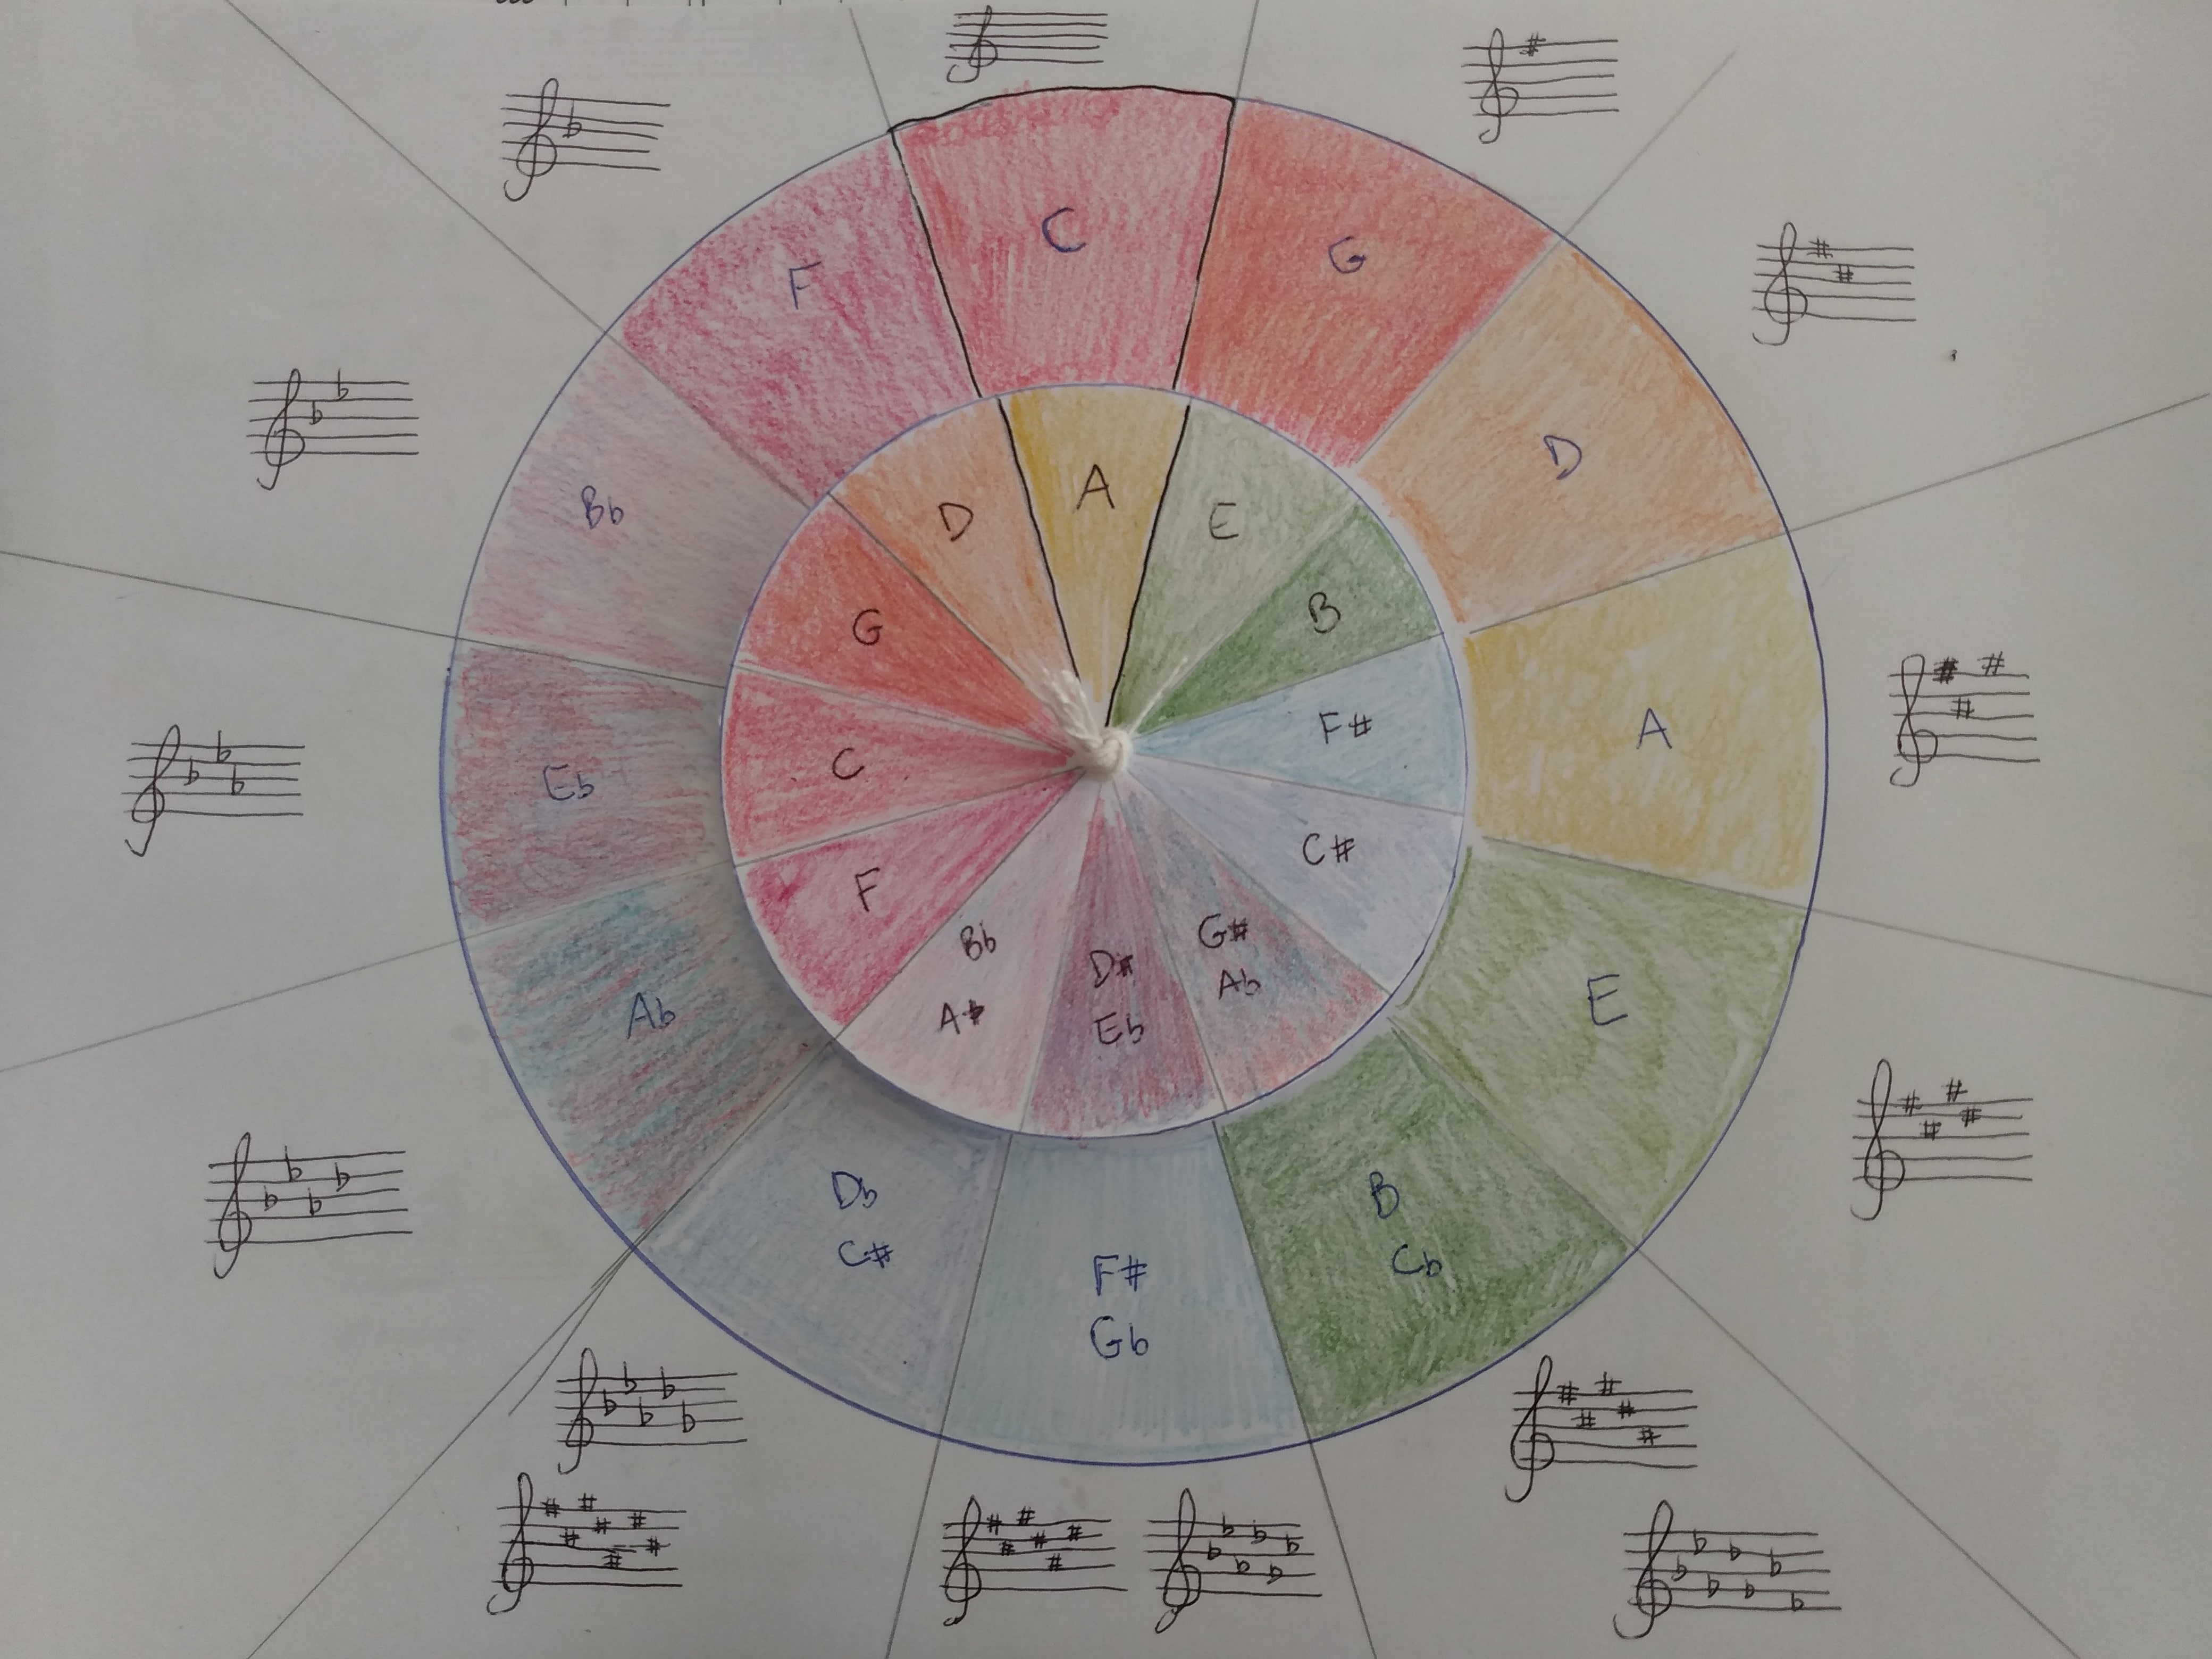 C
G
D
A
E
B
Cb
F#
Gb
Db
C#
Ab
Eb
Bb
F
A
E
B
F#
C#
G#
Ab
D#
Eb
Bb
A#
F
C
G
D